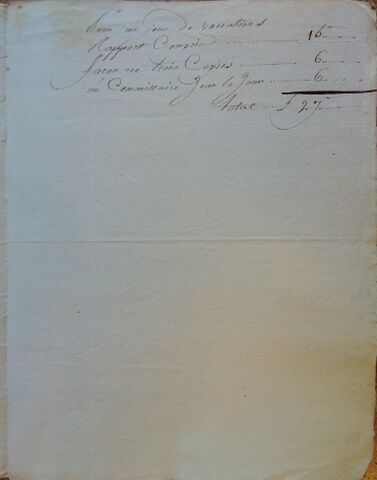 Pour un jour de vacations
Rapport Compris 15"
façon de trois Copies 6"
au Commissaire Jean le Jeun 6"
Total £ 27"